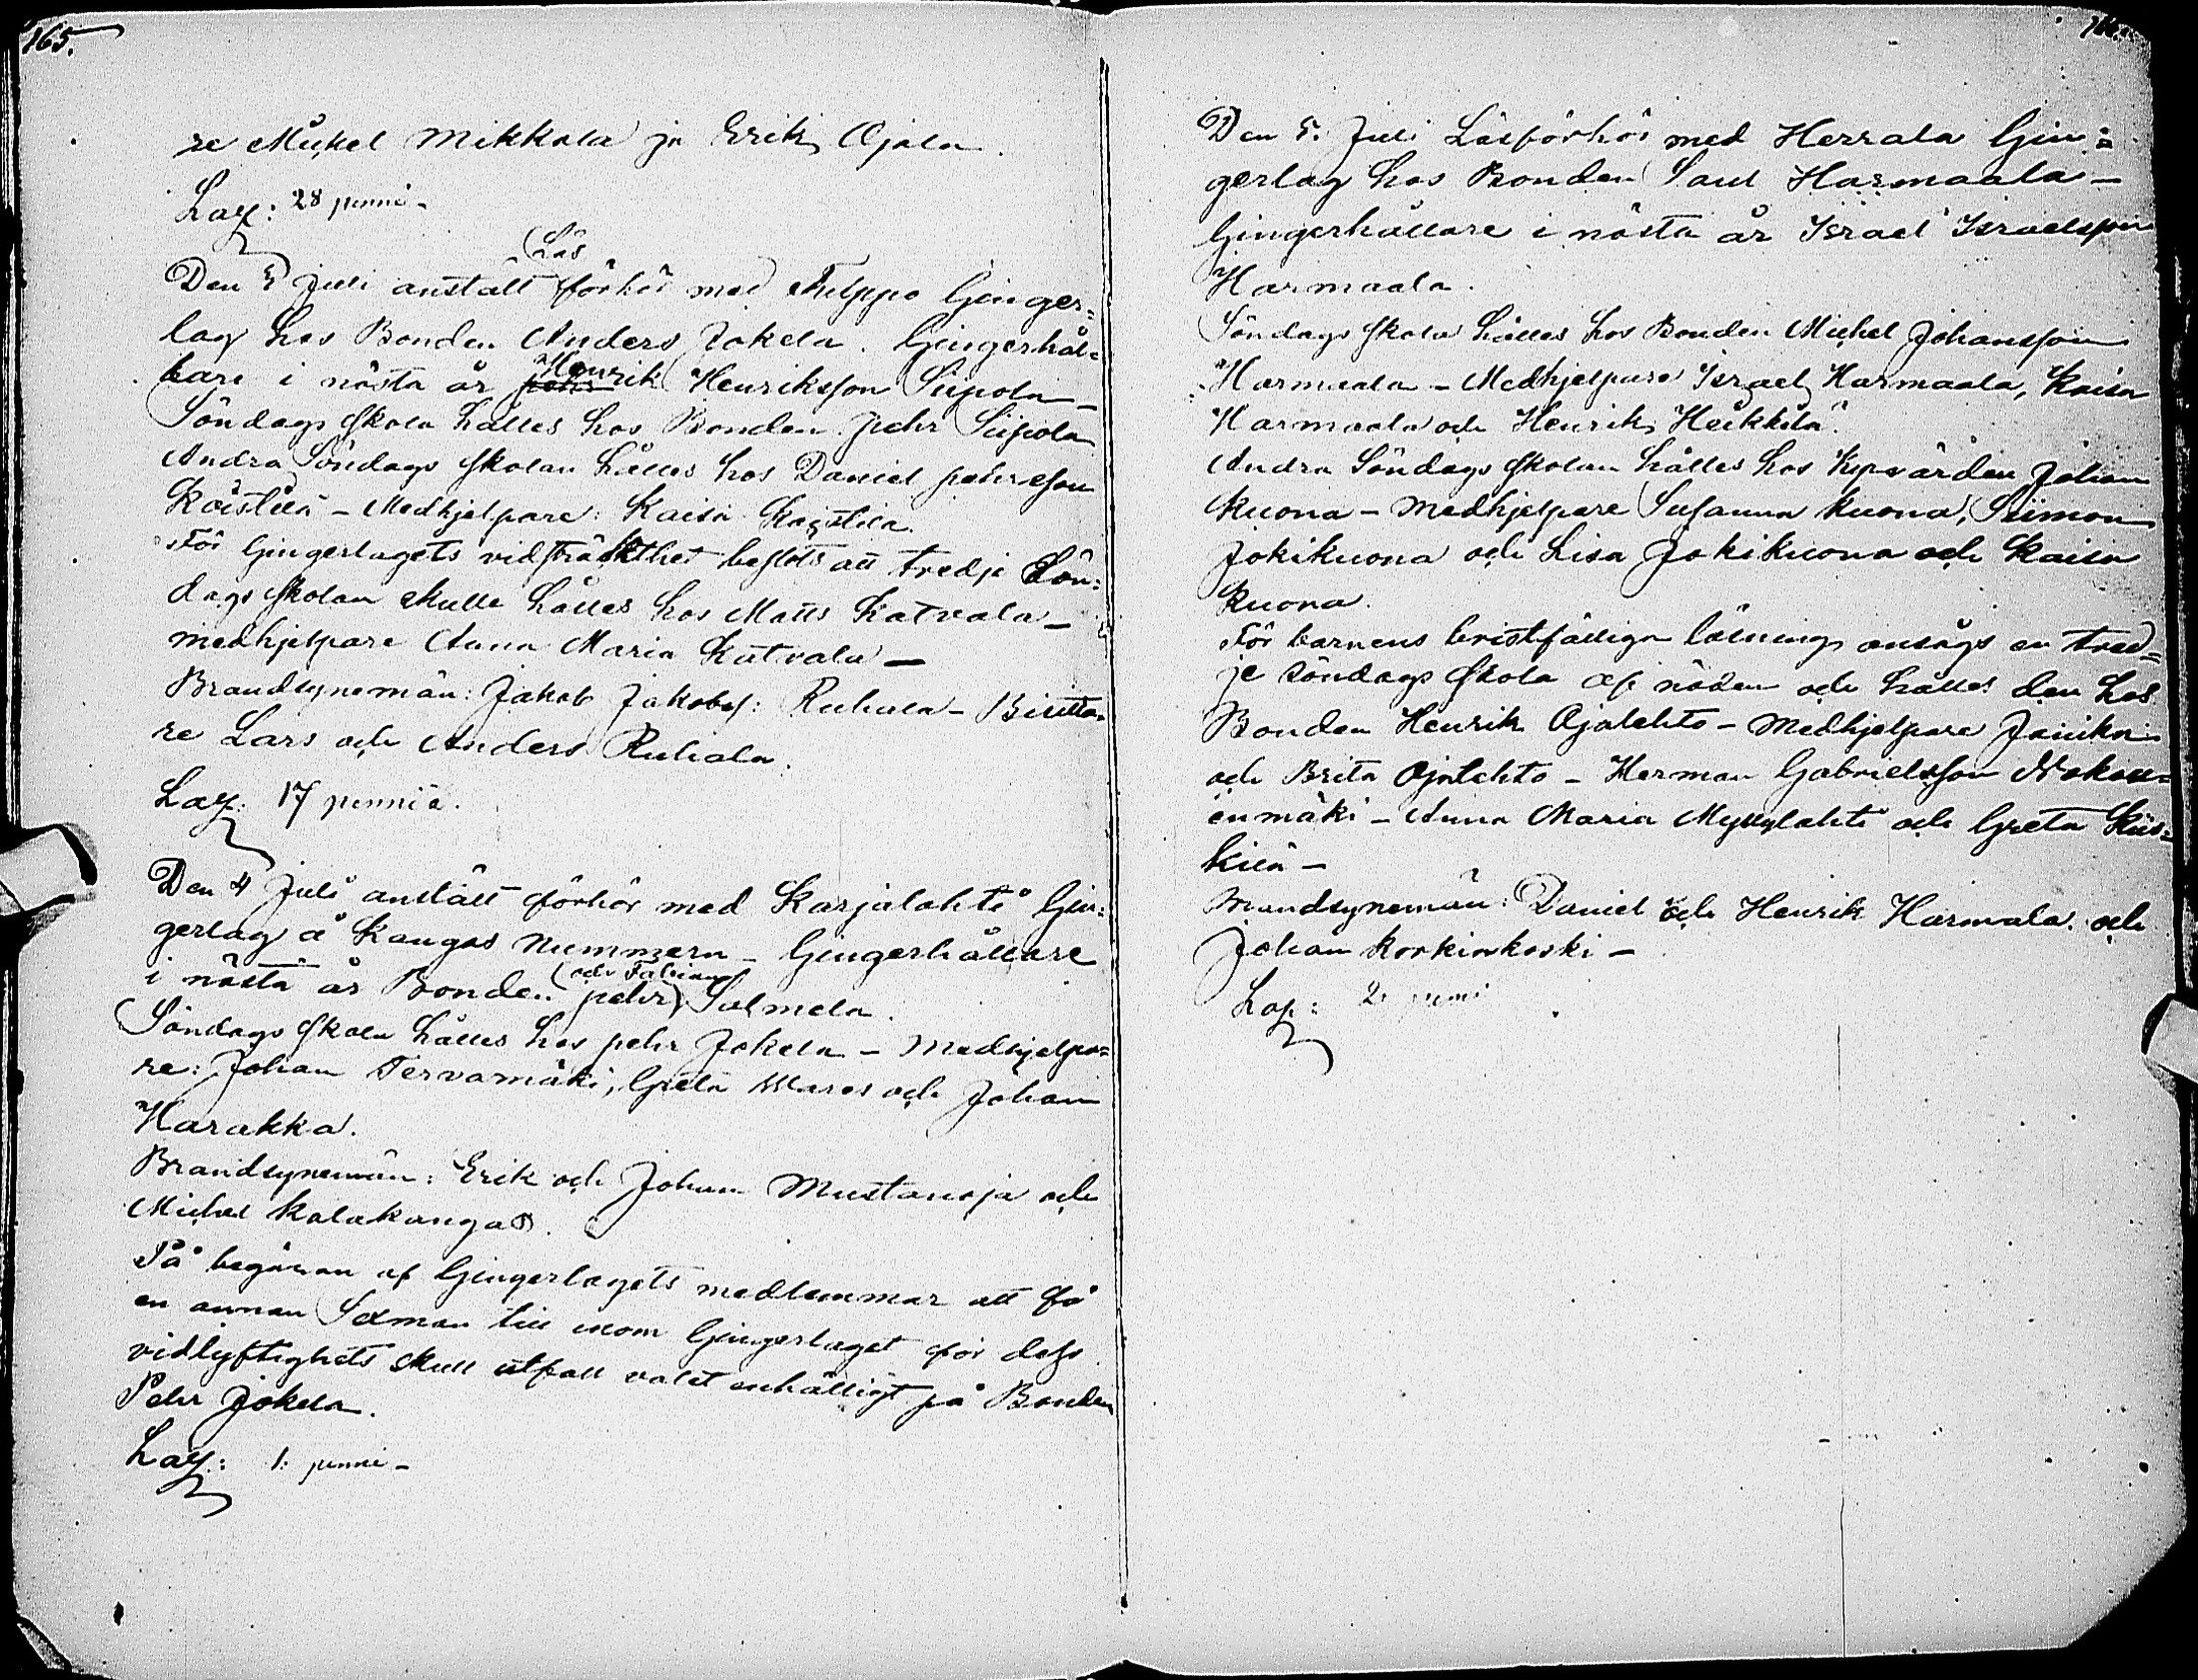 165.
re Mickel Mikkola ja Erik Ojala.
Lag: 28 penni -
Läs
Den 5 Juli anstält förhör med Filppo Ginger=
lag hos Bonden Anders Jokela. Gingerhål=
Henrik
lare i nästa år Henriksson Siipola -
Söndags skola hålles hos Bonden Pehr Siipola
Andra Söndags skolan hålles hos Daniel pehrsson
Köistilä - Medhjelpare: Kaisa Köistilä.
För Gingerlagets vidsträkthet beslöts att tredje Sön=
dags skolan skulle hålles hos Matts Katvala -
medhjelpare Anna Maria Katvala -
Brandsynemän: Jakob Jakobs: Ruhala -
re Lars och Anders Ruhala.
Lag: 17 penniä.
Den 4 Juli anstält förhör med Karjalahti Gin=
gerlag å Kangas Nummern - Gingerhållare
och Fabian
i nästa år Bonden pehr Salmela.
Söndags skola hålles hos pehr Jokela - Medhjelpa=
re: Johan Tervamäki, Greta Wares och Johan
Harakka.
Brandsynemän: Erik och Johan Mustanoja och
Michel Kalakangas.
På begäran af Gingerlagets medlemmar att få
en annan Sexman till inom Gingerlaget för dess
vidlyftighets skull utfall valet enhälligt på Bonden
Pehr Jokela.
Lag: 1. penni -
Den 5. Juli Läsförhör med Herrala Gin=
gerlag hos Bonden Saul Harmaala -
Gingerhållare i nästa år Israel Israelsson
Harmaala.
Söndags skola hålles hos Bonden Michel Johansson
Harmaala - Medhjelpare Israel Harmaala, Kaisa
Harmaala och Henrik Heikkilä.
Andra Söndags skolan hålles hos Kyrkvärden Johan
Kuona - Medhjelpare Susanna Kuona, Siimon
Jokikuona och Lisa Jokikuona och Kaisa
Kuona.
För barnens bristfälliga läsning ansågs en tred=
je söndags skola af nöden och hålles den hos
Bonden Henrik Ojalehto - Medhjelpare
och Brita Ojalehto - Herman Gabrielsson
enmäki - Anna Maria Myllylahti och Greta Kiis=
kilä -
Brandsynemän: Daniel och Henrik Harmala. och
Johan Korkiakoski -
Lag: penni